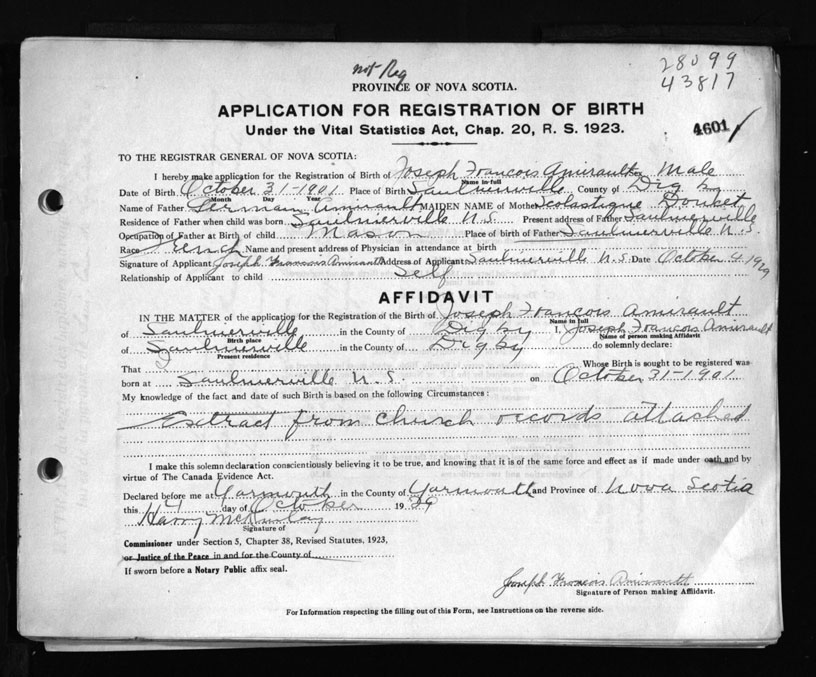 not Reg
28099
43817
PROVINCE OF NOVA SCOTIA.
APPLICATION FOR REGISTRATION OF BIRTH
Under the Vital Statistics Act, Chap. 20, R. S. 1923.
4601
TO THE REGISTRAR GENERAL OF NOVA SCOTIA:
I hereby make application for the Registration of Birth of Joseph Francois Amirault Sex Male
Name in full
Date of Birth October 31-1901 Place of Birth Saulnierville County of Digby
Month Day Year
Name of Father Amirault MAIDEN NAME of Mother Scholastique Doucet
Residence of Father when child was born Saulnierville N.S. Present address of Father Saulnierville
Occupation of Father at Birth of child Mason Place of birth of Father Saulnierville N.S.
Race French Name and present address of Physician in attendance at birth
Signature of Applicant Joseph Francois Amirault Address of Applicant Saulnierville N.S. Date October 4, 1939
Relationship of Applicant to child Self
AFFIDAVIT
IN THE MATTER of the application for the Registration of the Birth of Joseph Francois Amirault
Name in full
of Saulnierville in the County of Digby I, Joseph Francois Amirault
Birth place Name of person making Affidavit
of Saulnierville in the County of Digby do solemnly declare:
Present residence
That Whose Birth is sought to be registered was
born at Saulnierville N.S. on October 31-1901
My knowledge of the fact and date of such Birth is based on the following Circumstances:
Extract from Church records attached
I make this solemn declaration conscientiously believing it to be true, and knowing that it is of the same force and effect as if made under oath and by
virtue of The Canada Evidence Act.
Declared before me at Yarmouth in the County of Yarmouth and Province of Nova Scotia
this 4 day of October 1939
Harry McKinlay
Signature of
Commissioner under Section 5, Chapter 38, Revised Statutes, 1923,
or Justice of the Peace in and for the County of
If sworn before a Notary Public affix seal.
Joseph Francois Amirault
Signature of Person making Affidavit.
For Information respecting the filling out of this Form, see Instructions on the reverse side.